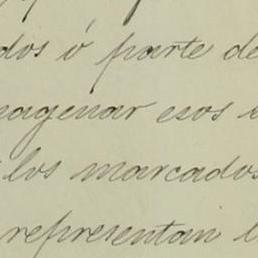 dos ó parte de
nagenar esos
los marcados
representan